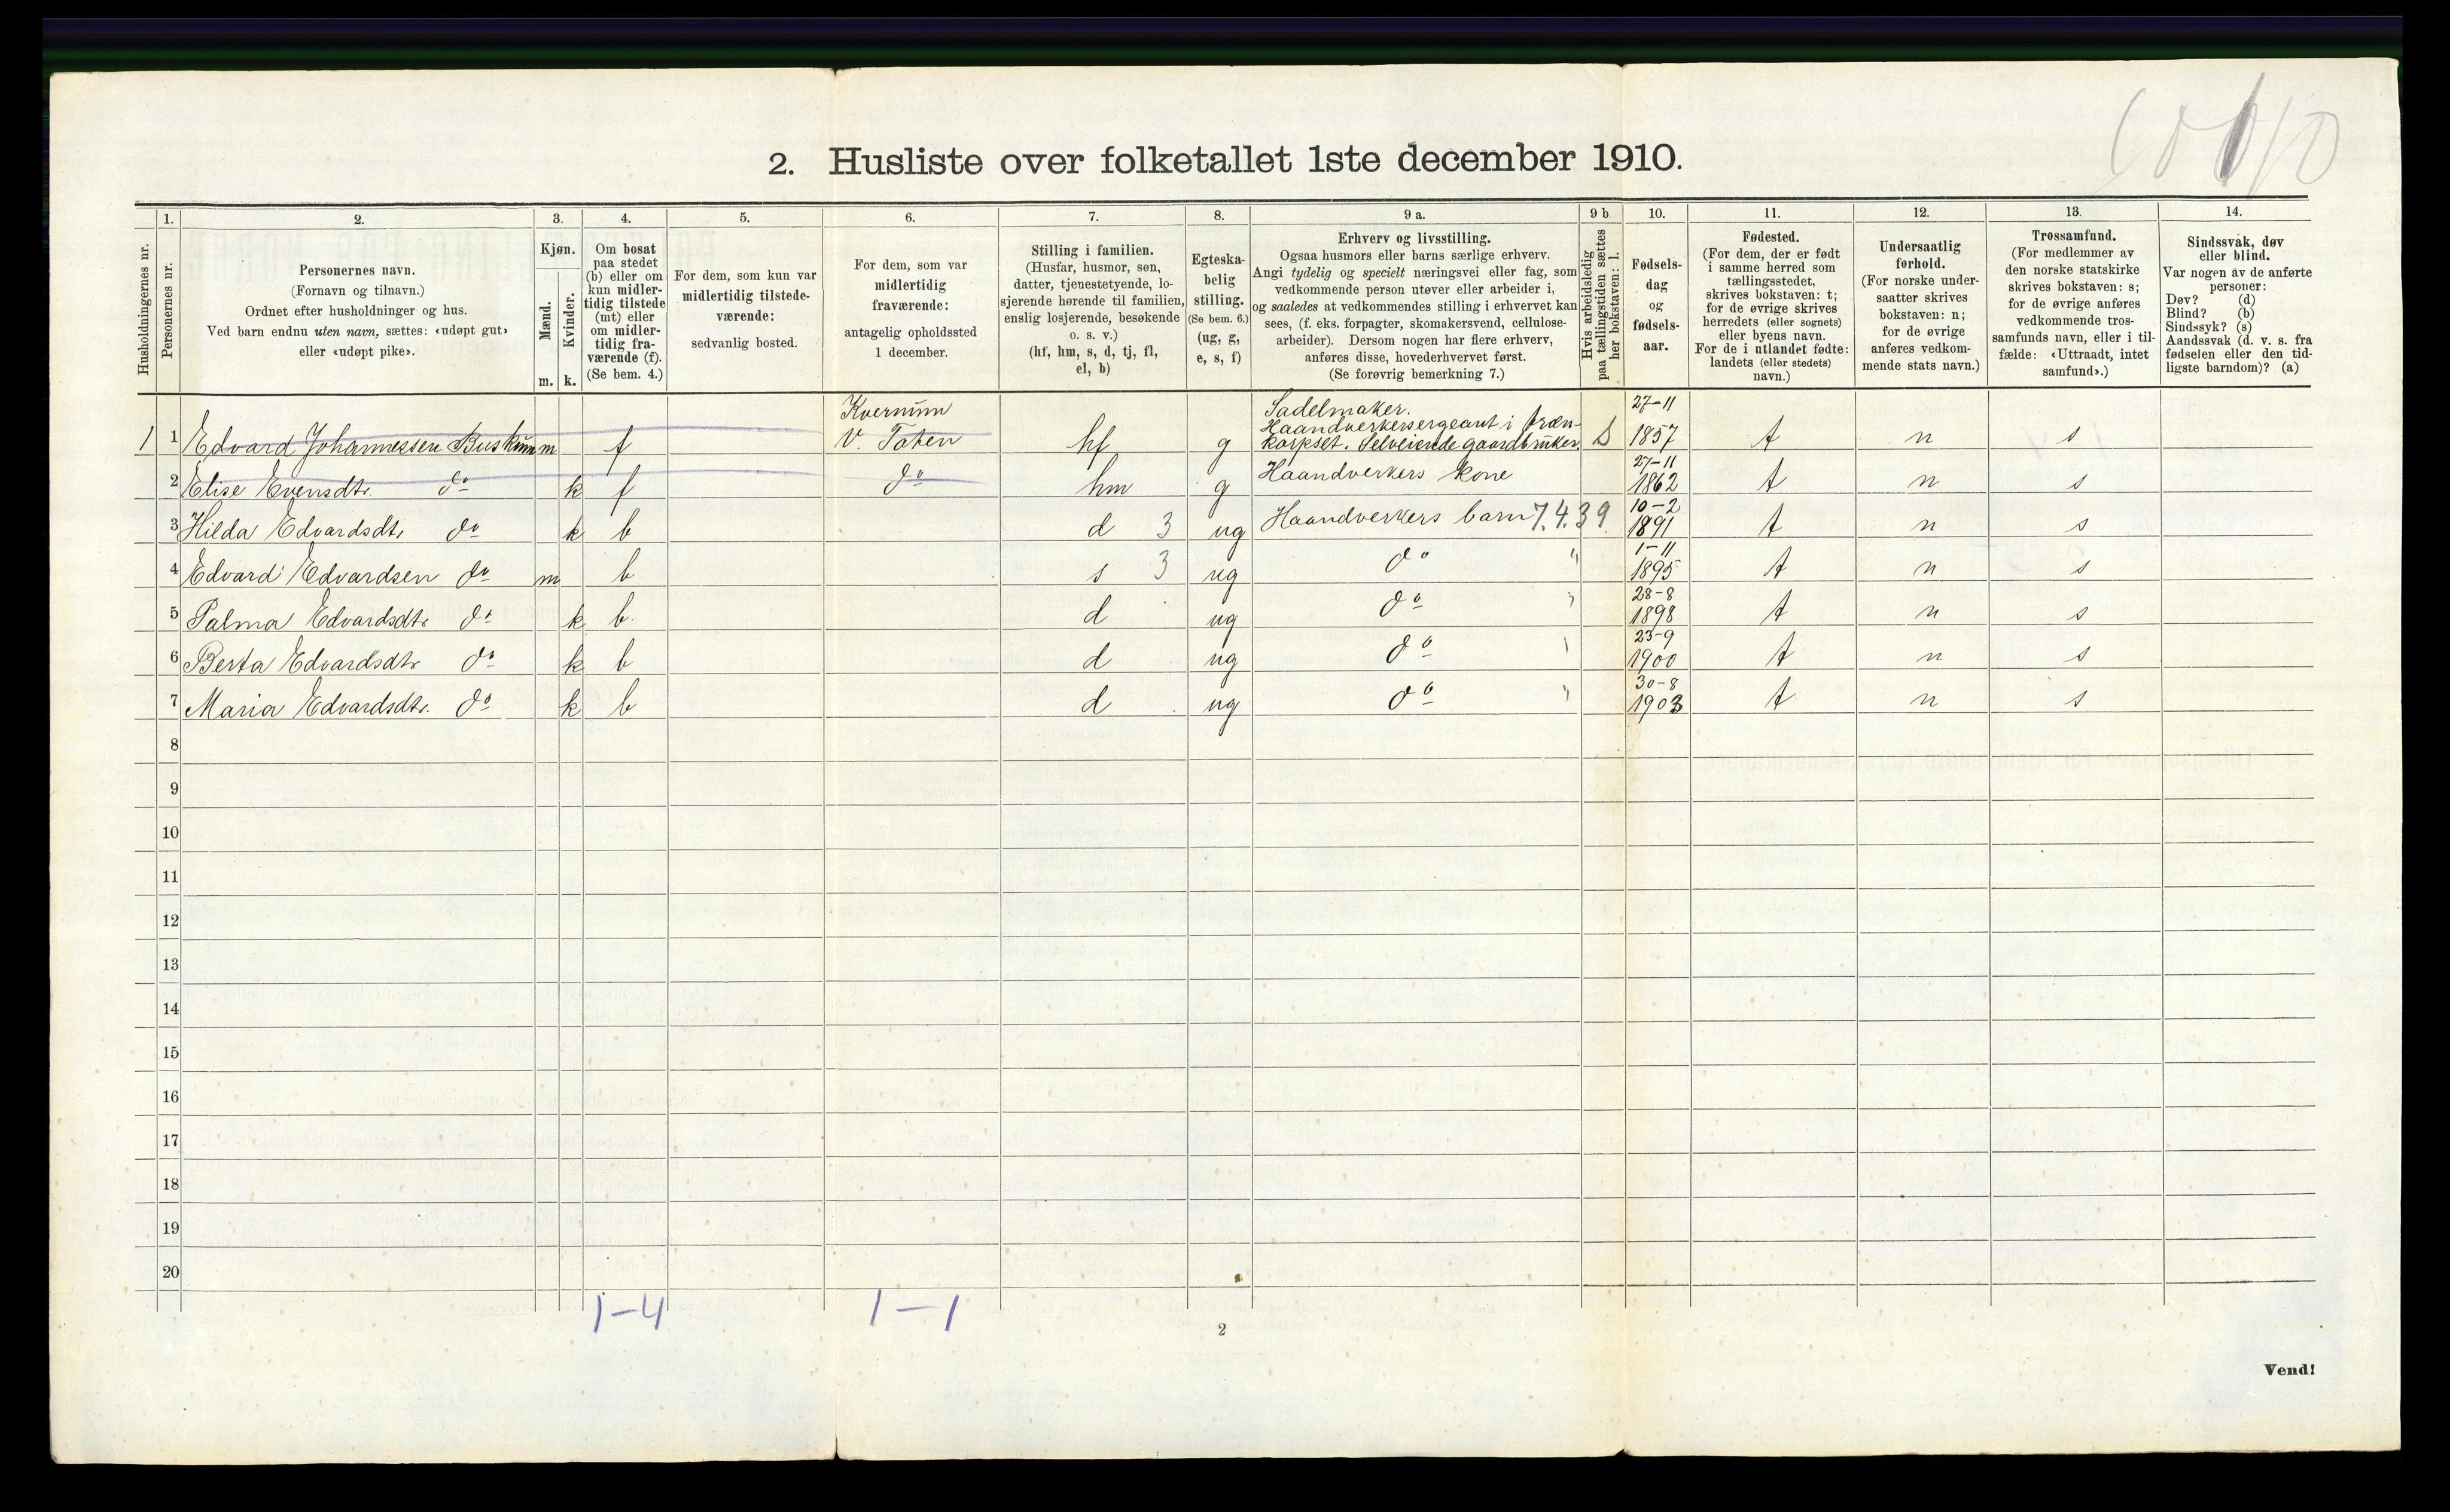 2. Husliste over folketallet 1ste december 1910.
Husholdningernes nr.
1.
Personernes nr.
2.
Personernes navn.
(Fornavn og tilnavn.)
Ordnet efter husholdninger og hus.
Ved barn endnu uten navn, sættes: «udøpt gut»
eller «udøpt pike».
3.
Kjøn.
Mænd.
Kvinder.
m. k.
4.
Om bosat
paa stedet
(b) eller om
kun midler-
tidig tilstede
(mt) eller
om midler-
tidig fra-
værende (f).
(Se bem. 4.)
5.
For dem, som kun var
midlertidig tilstede-
værende:
sedvanlig bosted.
6.
For dem, som var
midlertidig
fraværende:
antagelig opholdssted
1 december.
7.
Stilling i familien.
(Husfar, husmor, søn,
datter, tjenestetyende, lo-
sjerende hørende til familien,
enslig losjerende, besøkende
o. s. v.)
(hf, hm, s, d, tj, fl,
el, b)
8.
Egteska-
belig
stilling.
(Se bem. 6.)
(ug, g,
e, s, f)
9 a.
Erhverv og livsstilling.
Ogsaa husmors eller barns særlige erhverv.
Angi tydelig og specielt næringsvei eller fag, som
vedkommende person utøver eller arbeider i,
og saaledes at vedkommendes stilling i erhvervet kan
sees, (f. eks. forpagter, skomakersvend, cellulose-
arbeider). Dersom nogen har flere erhverv,
anføres disse, hovederhvervet først.
(Se forøvrig bemerkning 7.)
9 b
Hvis arbeidsledig
paa tællingstiden sættes
her bokstaven: l.
10.
Fødsels-
dag
og
fødsels-
aar.
11.
Fødested.
(For dem, der er født
i samme herred som
tællingsstedet,
skrives bokstaven: t;
for de øvrige skrives
herredets (eller sognets)
eller byens navn.
For de i utlandet fødte:
landets (eller stedets)
navn.)
12.
Undersaatlig
forhold.
(For norske under-
saatter skrives
bokstaven: n;
for de øvrige
anføres vedkom-
mende stats navn.)
13.
Trossamfund.
(For medlemmer av
den norske statskirke
skrives bokstaven: s;
for de øvrige anføres
vedkommende tros-
samfunds navn, eller i til-
fælde: «Uttraadt, intet
samfund».)
14.
Sindssvak, døv
eller blind.
Var nogen av de anførte
personer:
Døv? (d)
Blind? (b)
Sindssyk? (s)
Aandssvak (d. v. s. fra
fødselen eller den tid-
ligste barndom)? (a)
Kvernum Sadelmaker. 27-11
Haandverkersergeant i træn-
1 1 Edvard Johannessen Buskum m f V. Toten hf g korpset. Selveiende gaardbruker. 1857 t n s
27-11
2 Elise Evensdtr. do k f do hm g Haandverkers kone 1862 t n s
10-2
3 Hilda Edvardsdtr. do k b d 3 ug Haandverkers barn 7.4.39 1891 t n s
1-11
4 Edvard Edvardsen do m b s 3 ug do " 1895 t n s
28-8
5 Palma Edvardsdtr. do k b d ug do " 1898 t n s
23-9
6 Berta Edvardsdtr do k b d ug do " 1900 t n s
30-8
7 Maria Edvardsdtr. do k b d ug do " 1903 t n s
8
9
10
11
12
13
14
15
16
17
18
19
20
1-4 1-1
2
Vend!